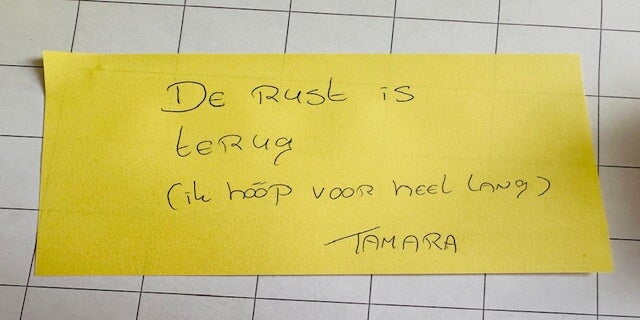 De rust is
terug
(ik hōōp voor heel lang)
TAMARA